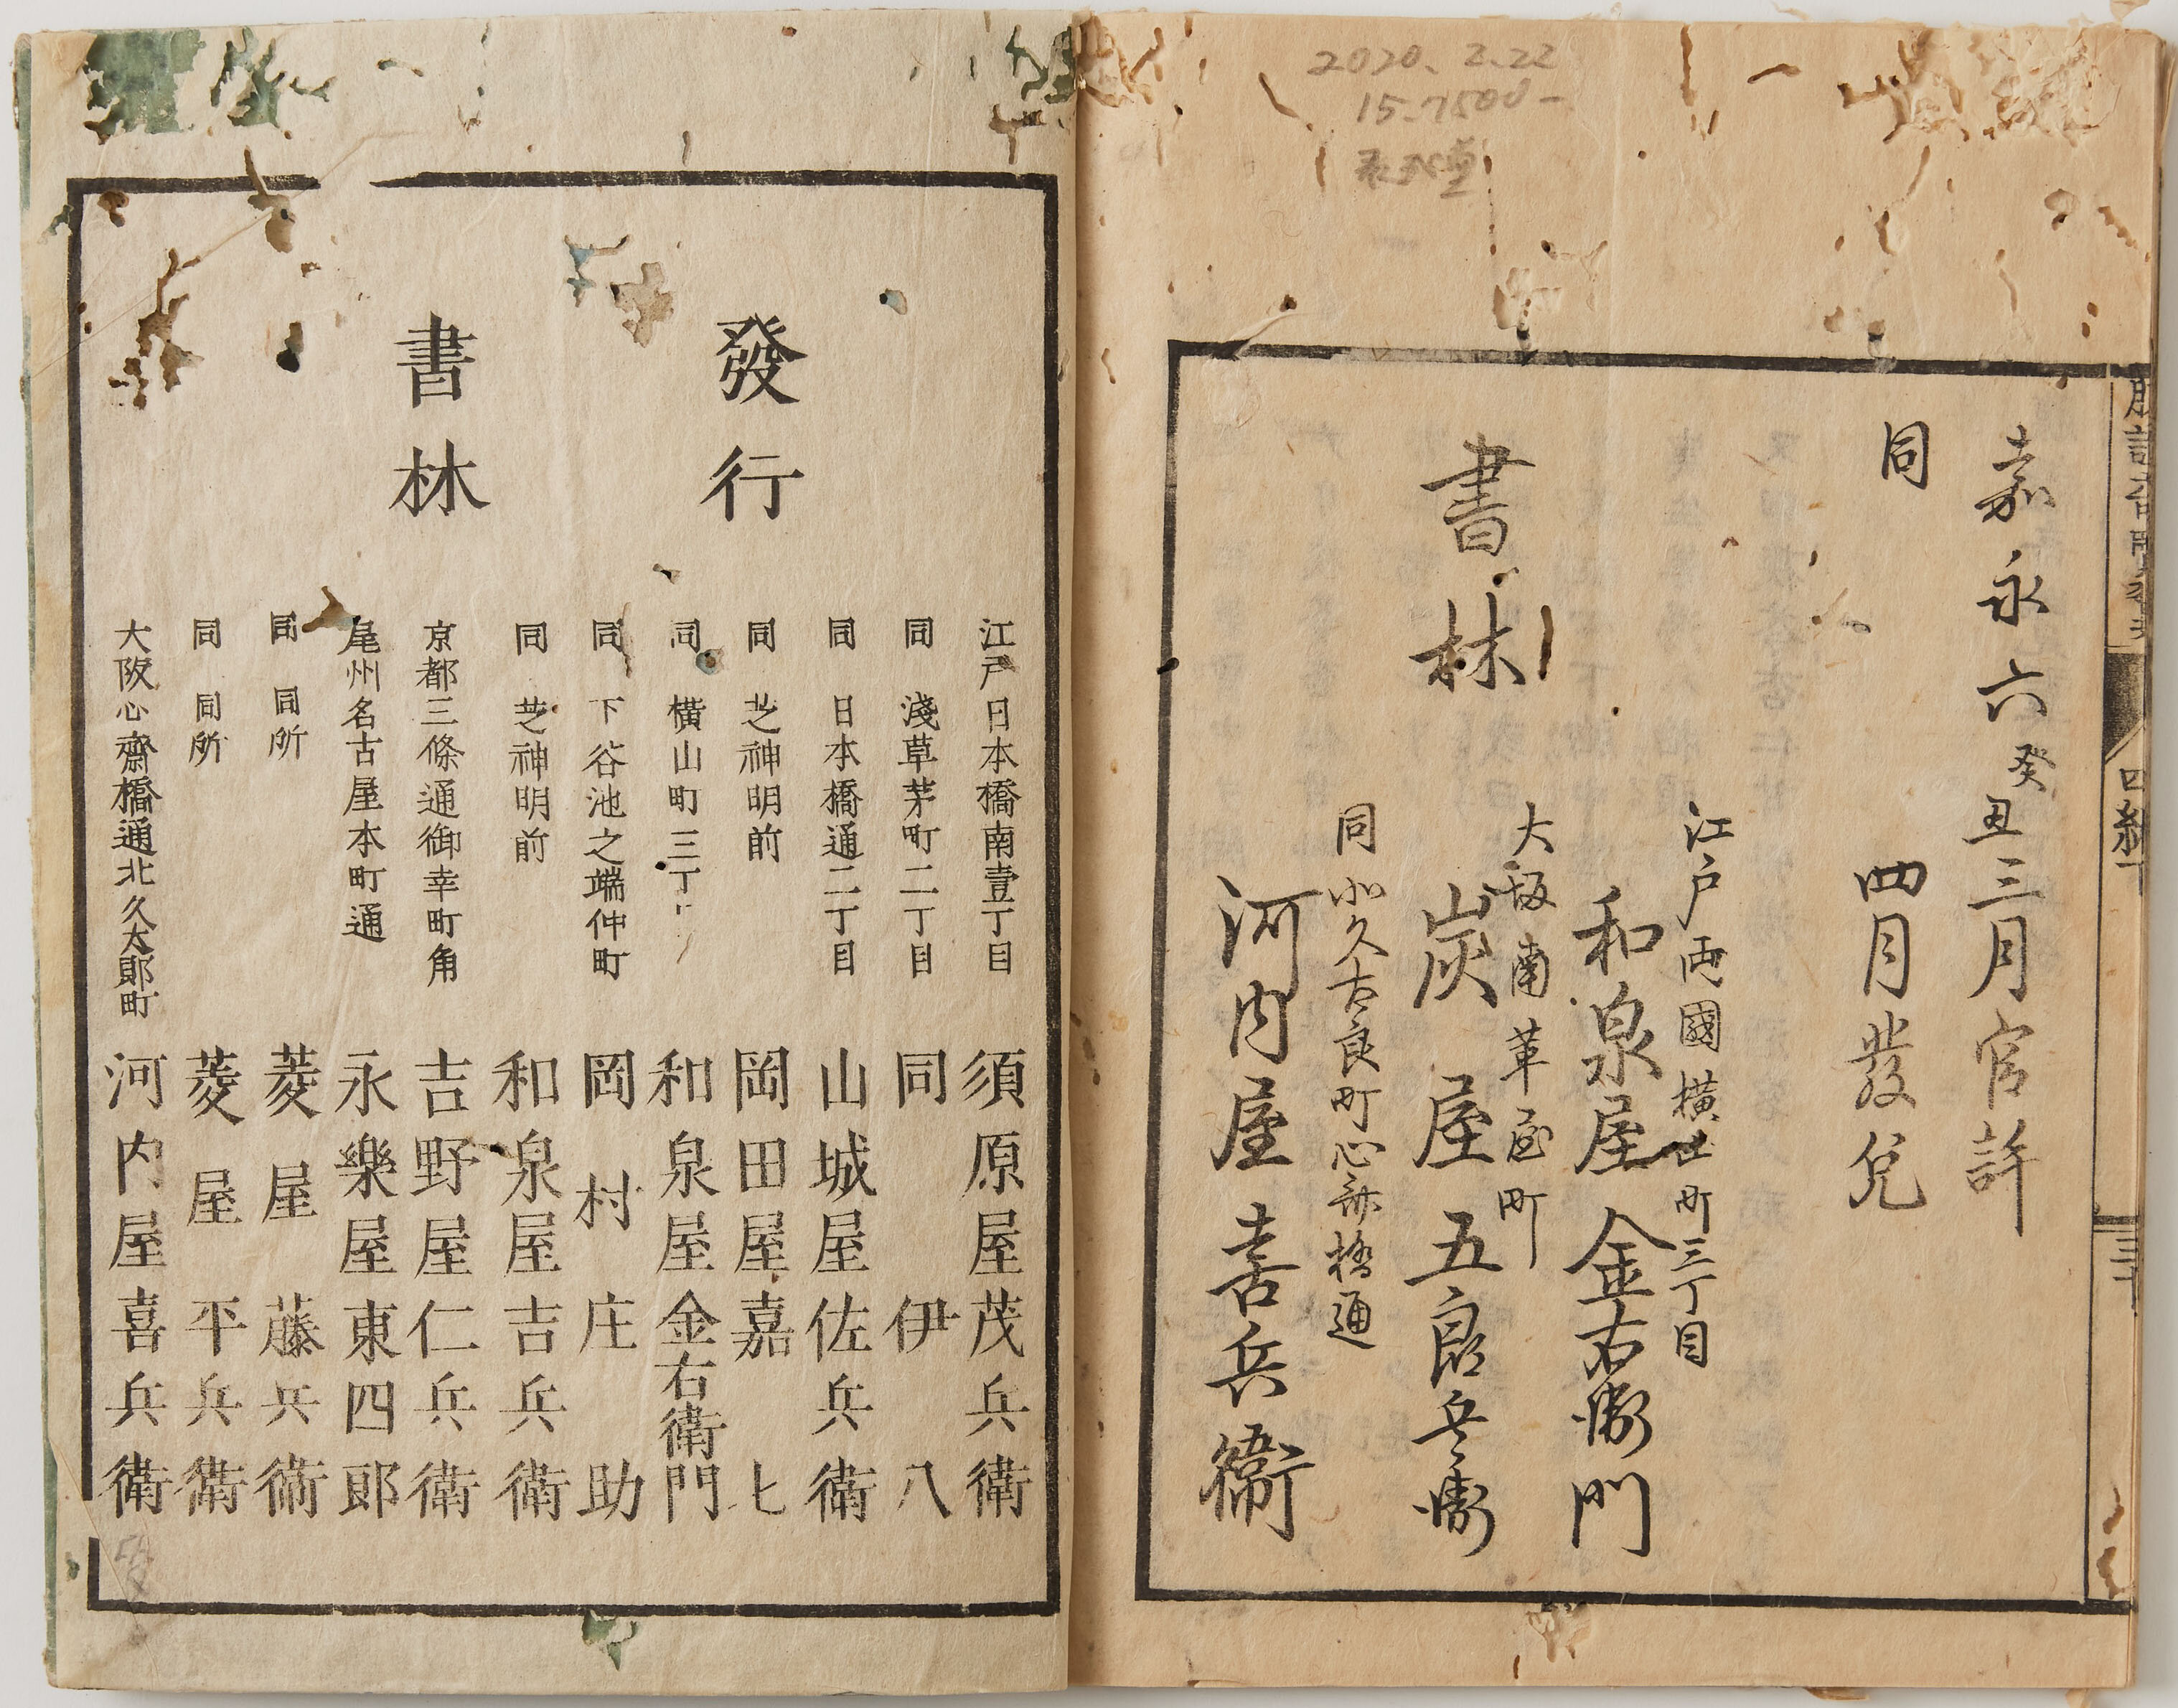 2020.2.22
15.7500-
嘉永六癸丑三月官許
同 四月發兌
書林
江戸両國横山町三丁目
和泉屋金右衛門
大坂南革屋町
炭屋五良兵衛
同北久古良町心斎橋通
河内屋喜兵衛
四編下
三十
發行
書林
江戸日本橋南壹丁目 須原屋茂兵衛
同 淺草茅町二丁目 同伊八
同 日本橋通二丁目 山城屋佐兵衛
同 芝神明前 岡田屋嘉七
同 横山町三丁 和泉屋金右衛門
同 下谷池之端仲町 岡村庄助
同 芝神明前 和泉屋吉兵衛
京都三條通御幸町角 吉野屋仁兵衛
尾州名古屋本町通 永樂屋東四郎
同 同所 菱屋藤兵衛
同 同所 菱屋平兵衛
大阪心齋橋通北久太郎町 河内屋喜兵衛